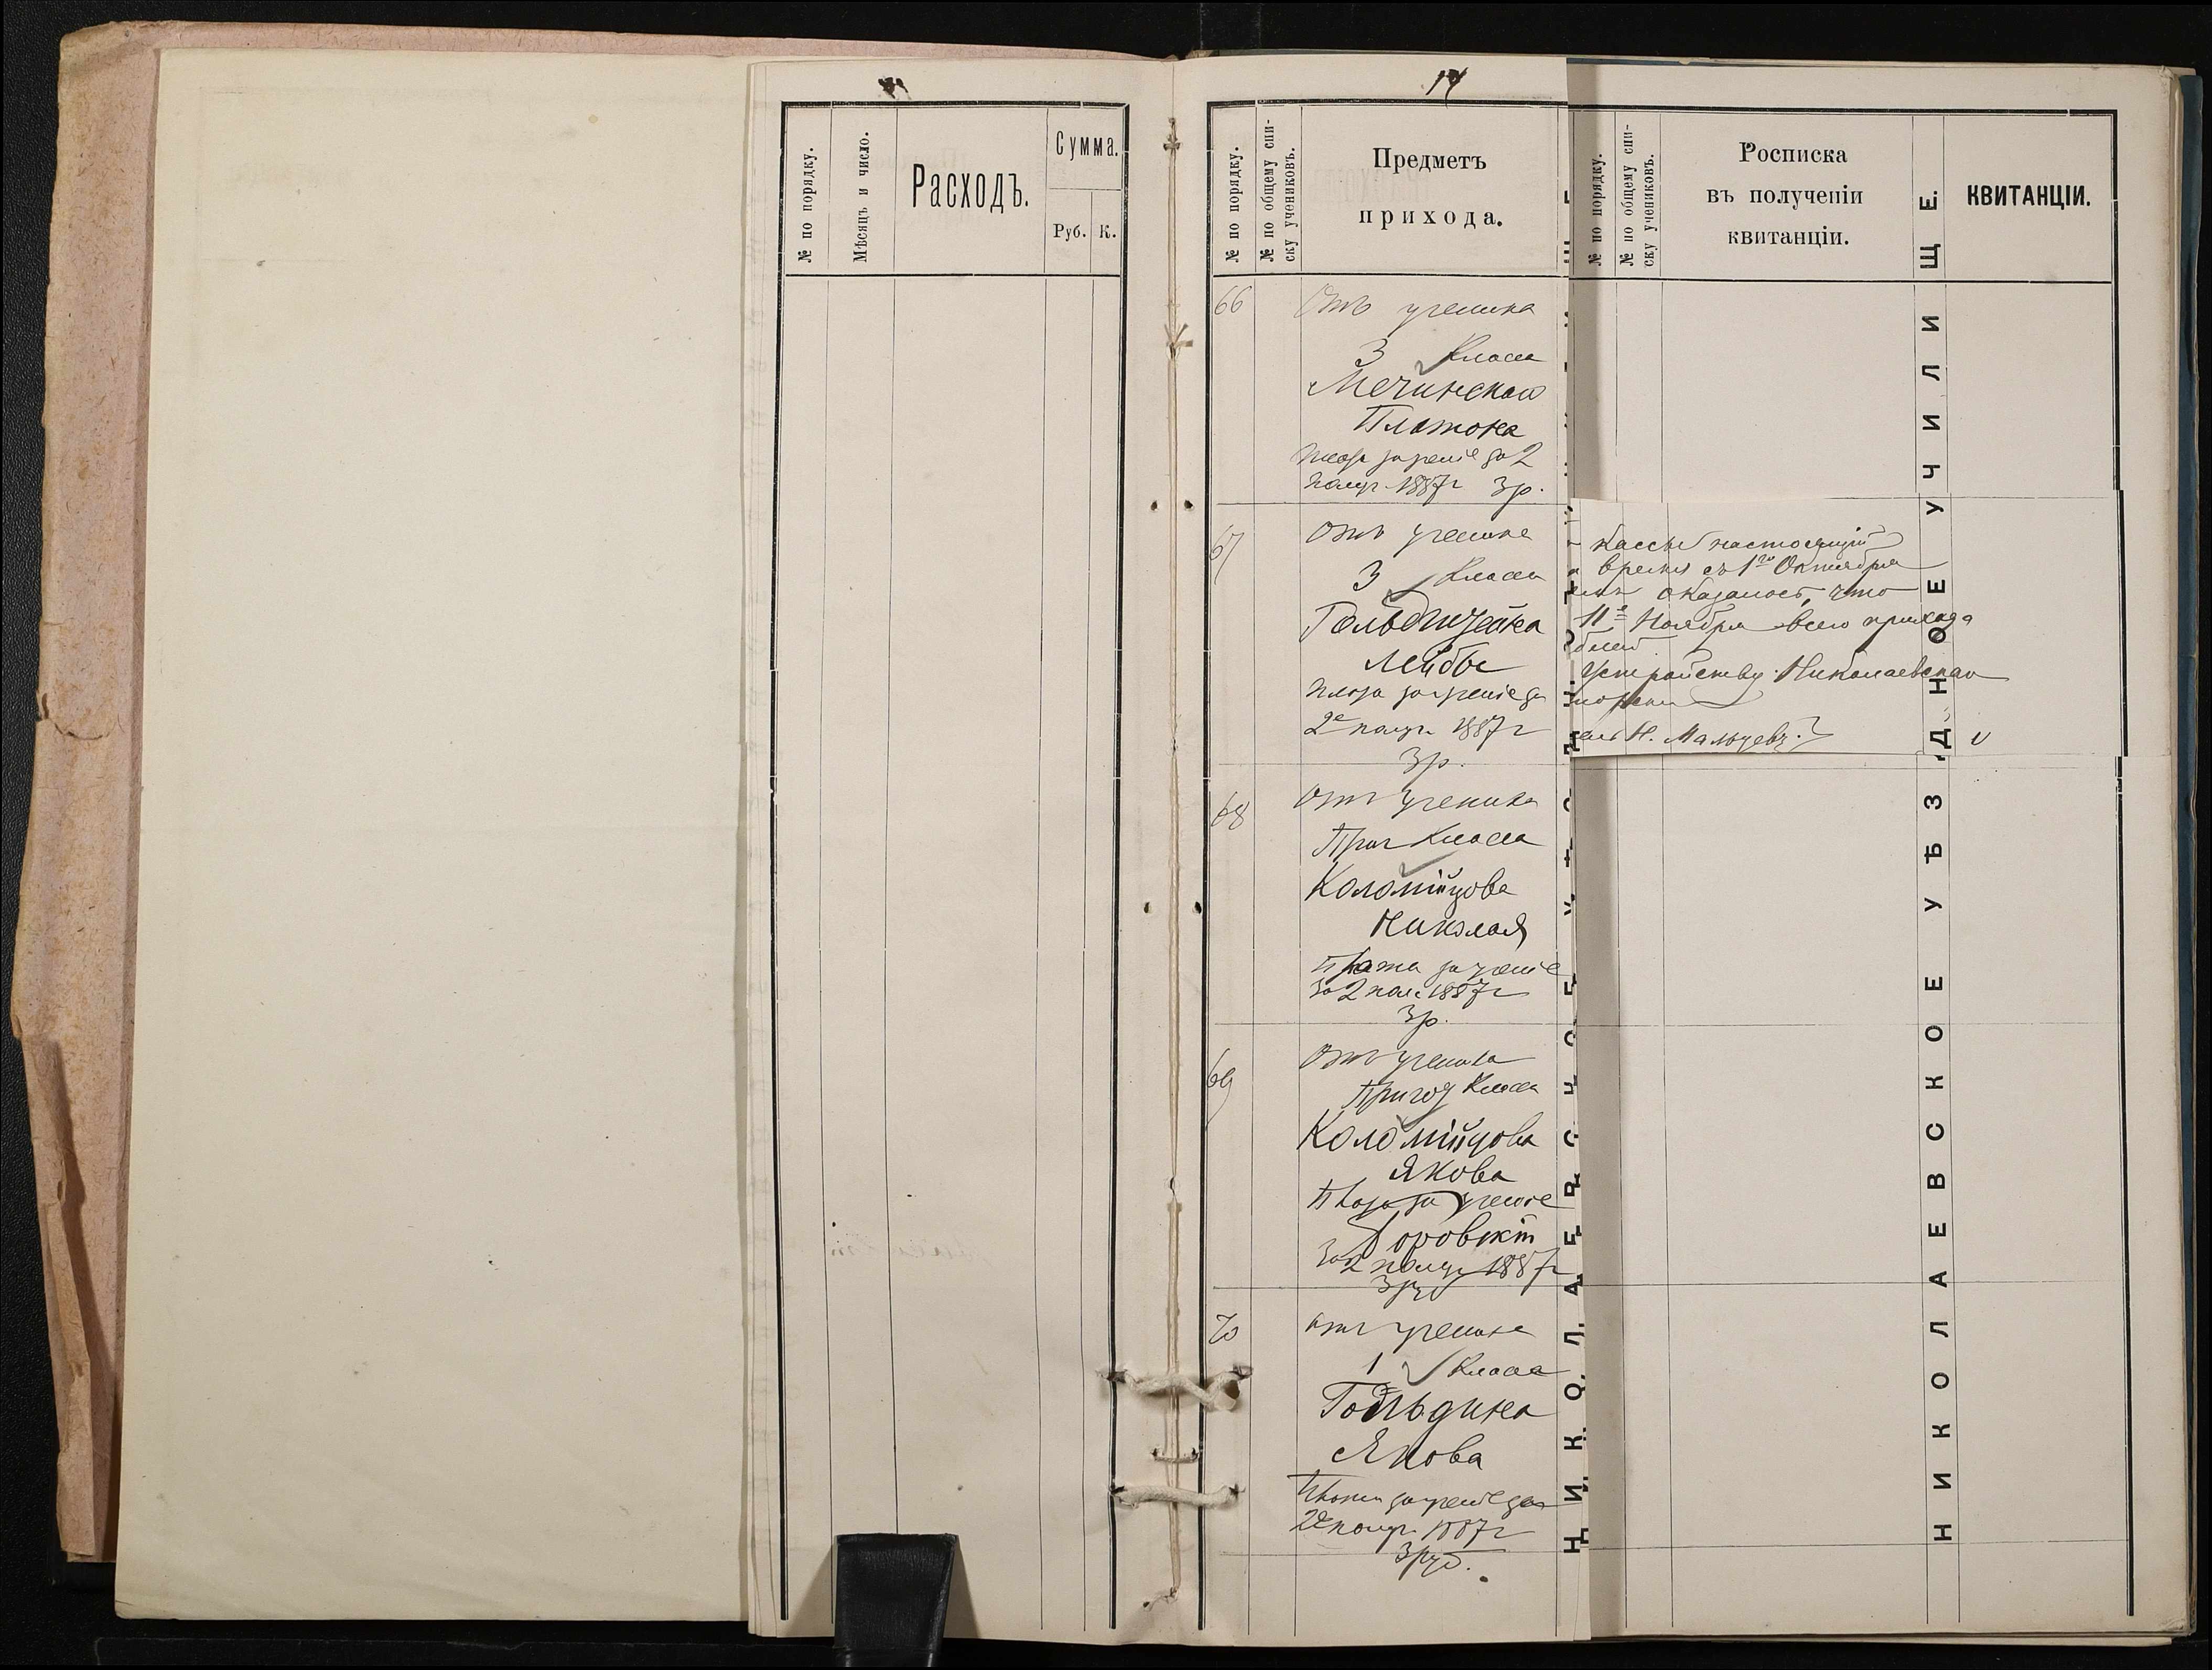 № по порядку.
Мѣсяцъ и число.
Расходъ.
Сумма.
Руб.
К.
14
№ по порядку.
№ по общему спи-
ску учениковъ.
Предметъ
прихода.
66
Отъ ученика
3 Класса
Мечинскаго
Платона
за 2
полуг. 1887 г 3 р.
67
Отъ ученика
3 Класса
Лейбы
2е полуг. 1887 г
3 р.
68
Отъ ученика
Приг Класса
Коломійцова
Николая
Плата за ученіе
за 2 пол. 1887 г
3 р.
69
Отъ ученика
Пригот Класса
Коломійцова
Якова
Плата за ученіе
за 2 полуг 1887 г
3 р
70
Отъ ученика
1 Класса
Гольдина
Якова
Плата за ученіе за
2е полуг. 1887 г
3 руб.
№ по порядку.
№ по общему спи-
ску учениковъ.
Росписка
въ полученіи
квитанціи.
КВИТАНЦІИ.
кассы настоящій
время съ 1го Октября
оказалось, что
11е Ноября всего прихода
блей
Устройству Николаевскаго
Н. Мальцевъ.
НИКОЛАЕВСКОЕ УѢЗДНОЕ УЧИЛИЩЕ.